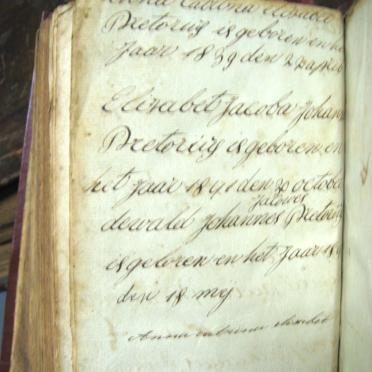 Pretorius is geboren en het
Jaar 1839 den 22 april
Elizabet Jacoba Johan
Pretorius is geboren en
het Jaar 1841 den 20 october
Jacowes
dewald Johannes Pretorius
is geboren en het Jaar 18
den 18 mey
Anna